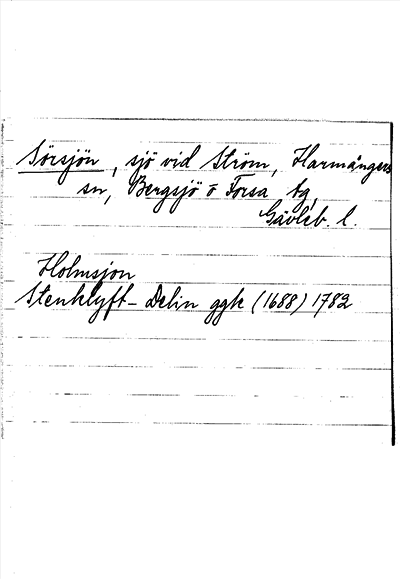 Sörsjön, sjö vid Ström, Harmångers
sn, Bergsjö o Forsa tg,
Gävleb. l.
Holmsjon
Stenklyft-Delin ggk (1688) 1782